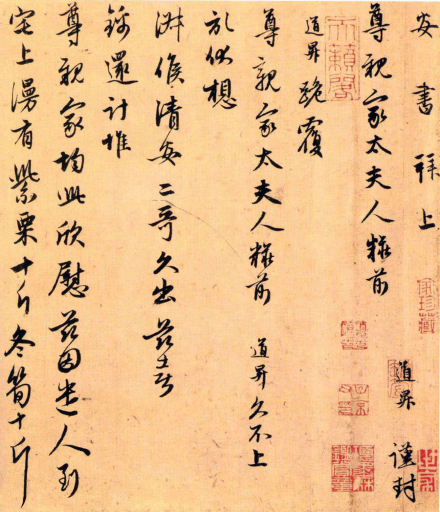 安書拜上
尊親家太夫人粧前
道昇 謹封
道昇跪覆
尊親家太夫人粧前 道昇久不上
狀伏想
淑候清安二哥久出茲喜
錦還計惟
尊親家均此欣慰茲因遣人到
宅上謾有紫栗十斤冬筍十斤
天籟閣